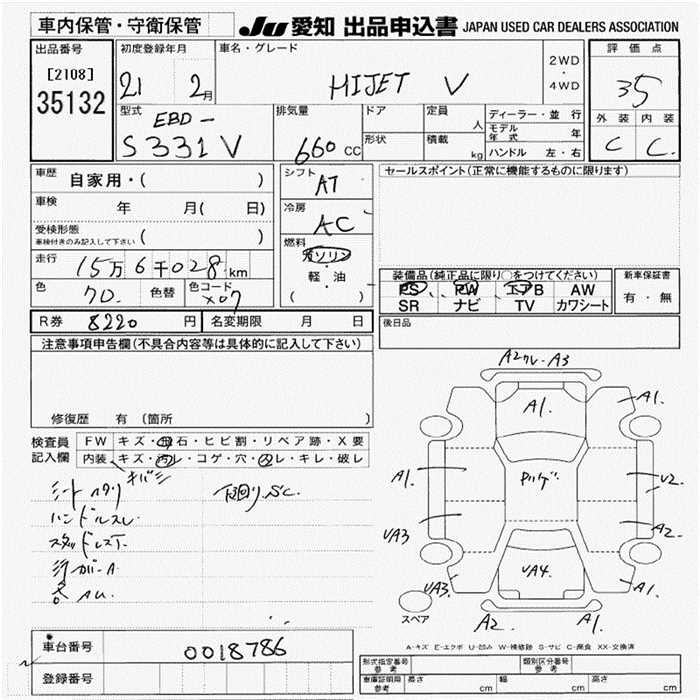 車内保管・守衛保管
JU 愛知 出品申込書 JAPAN USED CAR DEALERS ASSOCIATION
出品番号
[2108]
35132
初度登録年月
21 2月
車名・グレード
HIJET V
2WD
・
4WD
評価点
35
外装 内装
C C.
型式
EBD-
S331V
排気量
660 CC
ドア
形状
定員 人
積載 kg
ディーラー・並行
モデル年式 年
ハンドル 左・右
車歴 自家用・( )
車検 年 月( 日)
受検形態
車検付きのみ記入して下さい ( )
走行 15万6千028km
色 クロ. 色替 色コード X07
シフト AT
冷房 AC
燃料
ガソリン
軽・油
( )
セールスポイント(正常に機能するものに限ります)
装備品(純正品に限り○をつけてください)
PS PW エアB AW
SR ナビ TV カワシート
新車保証書
有・無
R券 8220 円 名変期限 月 日
後日品
注意事項申告欄(不具合内容等は具体的に記入して下さい)
修復歴 有 (箇所 )
検査員記入欄
FW キズ・飛石・ヒビ割・リペア跡・X要
内装 キズ・汚レ・コゲ・穴・スレ・キレ・破レ
シート
ハンドルスレ
下廻りSC.
A.U.
A2 A3
A1.
A1.
A1.
U2
UA3
A2.
UA3
UA4.
A1.
A2.
A1.
スペア
A-キズ E-エクボ U-凹み W-補修跡 S-サビ C-腐食 XX-交換済
車台番号 0018786
登録番号
形式指定番号 参考
類別区分番号 参考
車庫証明用 参考 長さ cm 幅 cm 高さ cm